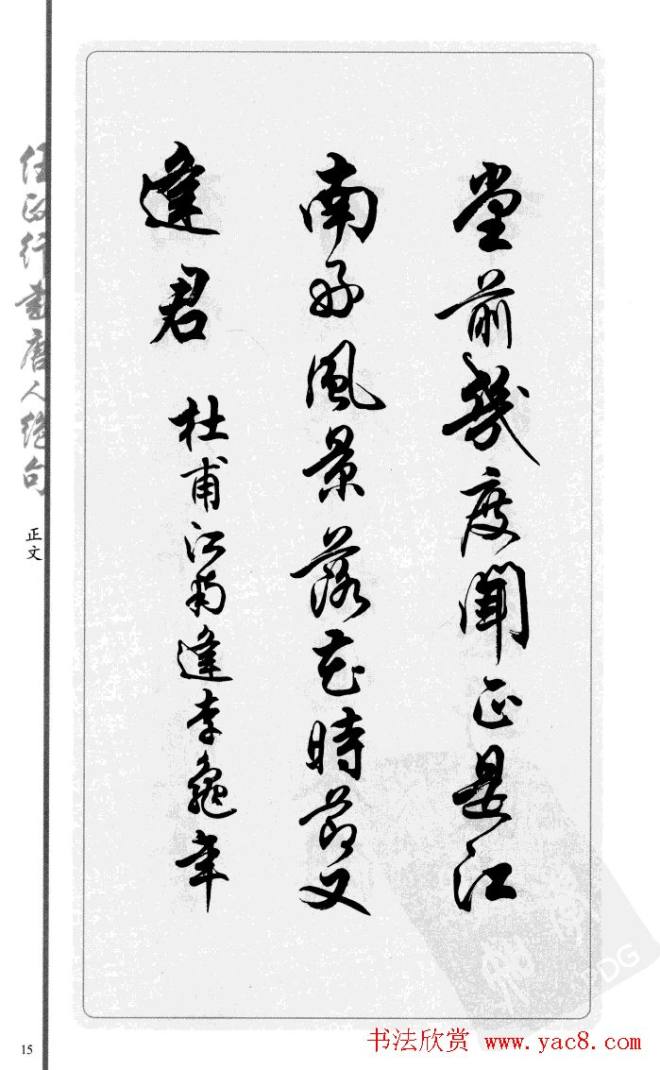 堂前幾度聞正是江
南好風景落花時節又
逢君
杜甫江南逢李龜年
任政行書唐人绝句
正文
15
书法欣赏 www.yac8.com
PDG